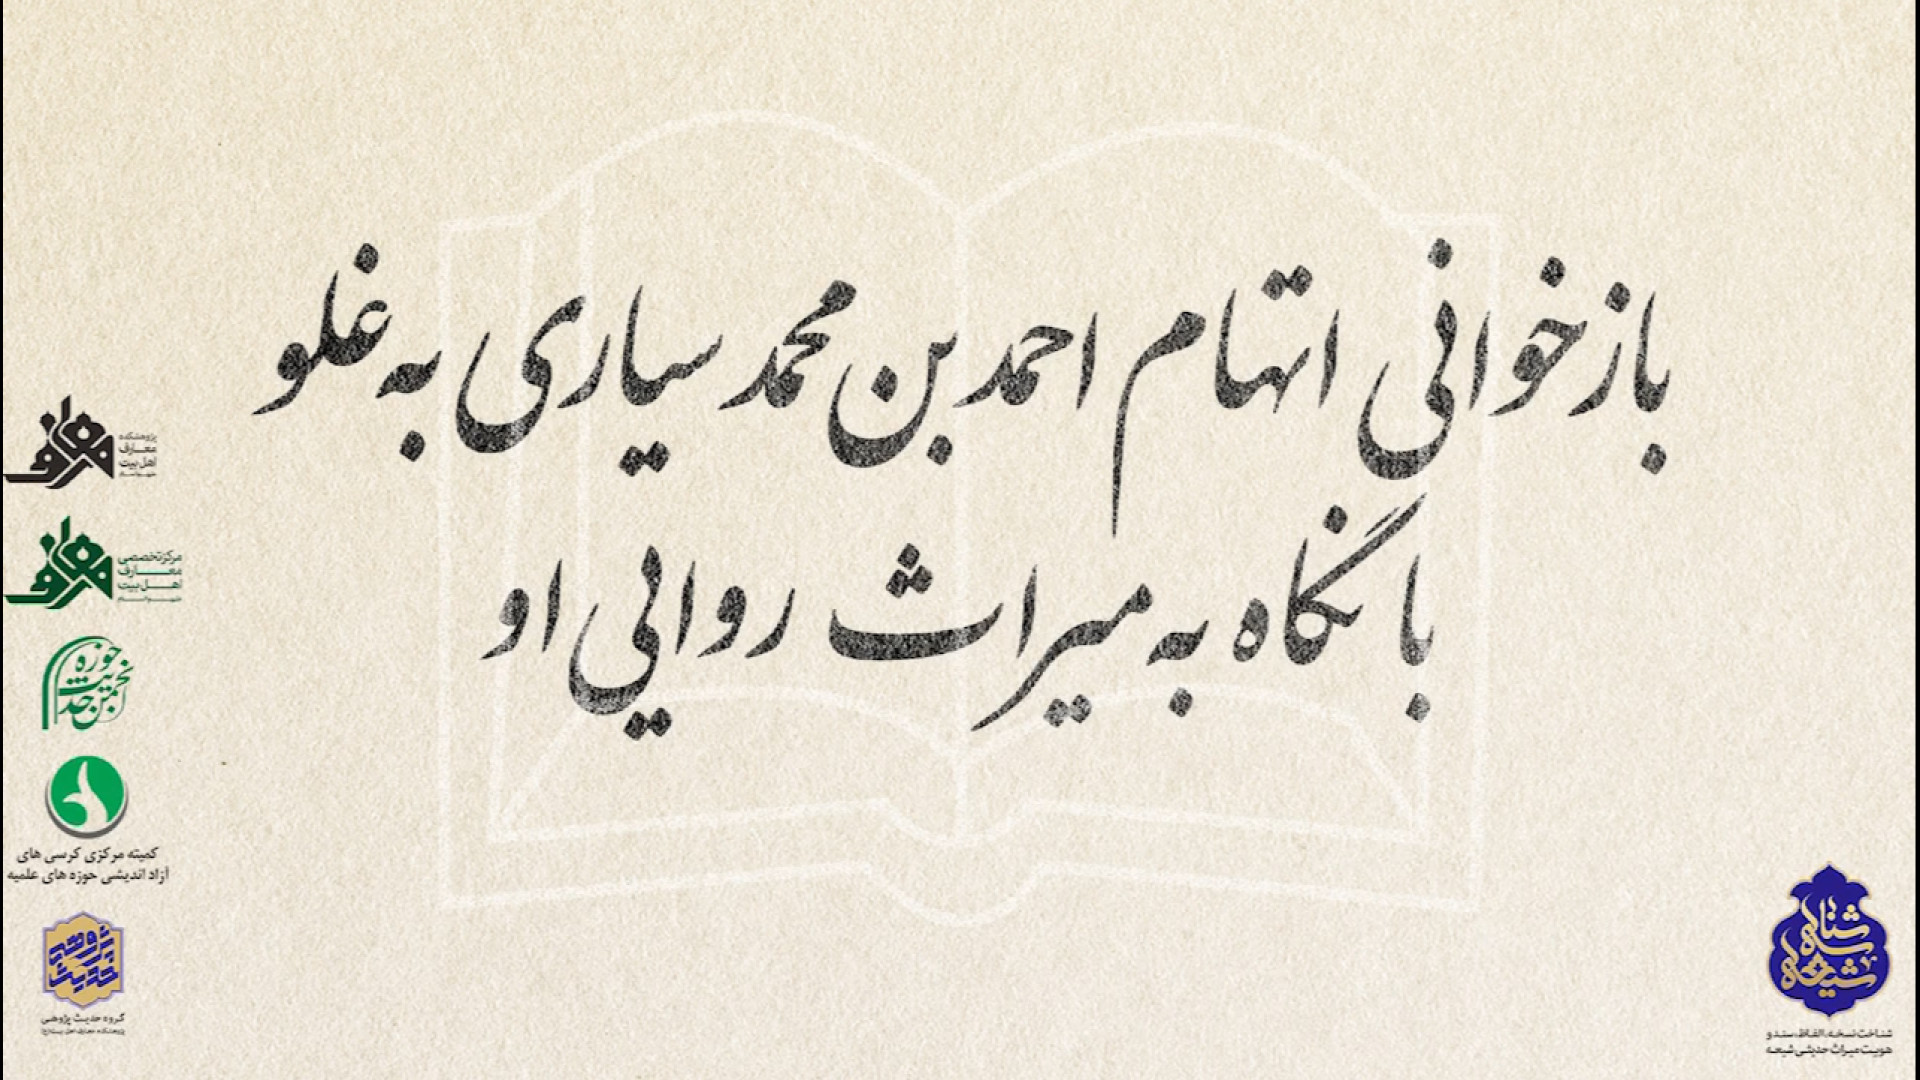 بازخوانی اتهام احمد بن محمد سیاری به غلو
با نگاه به میراث روایی او
پژوهشکده
معارف
اهل بیت
مرکز تخصصی
معارف
اهل بیت
انجمن حدیث حوزه
کمیته مرکزی کرسی های
آزاد اندیشی حوزه های علمیه
گروه حدیث پژوهی
پژوهشکده معارف اهل بیت (ع)
شناسه شیعه
شناخت نسخه، الفاظ، سند و
هویت میراث حدیثی شیعه